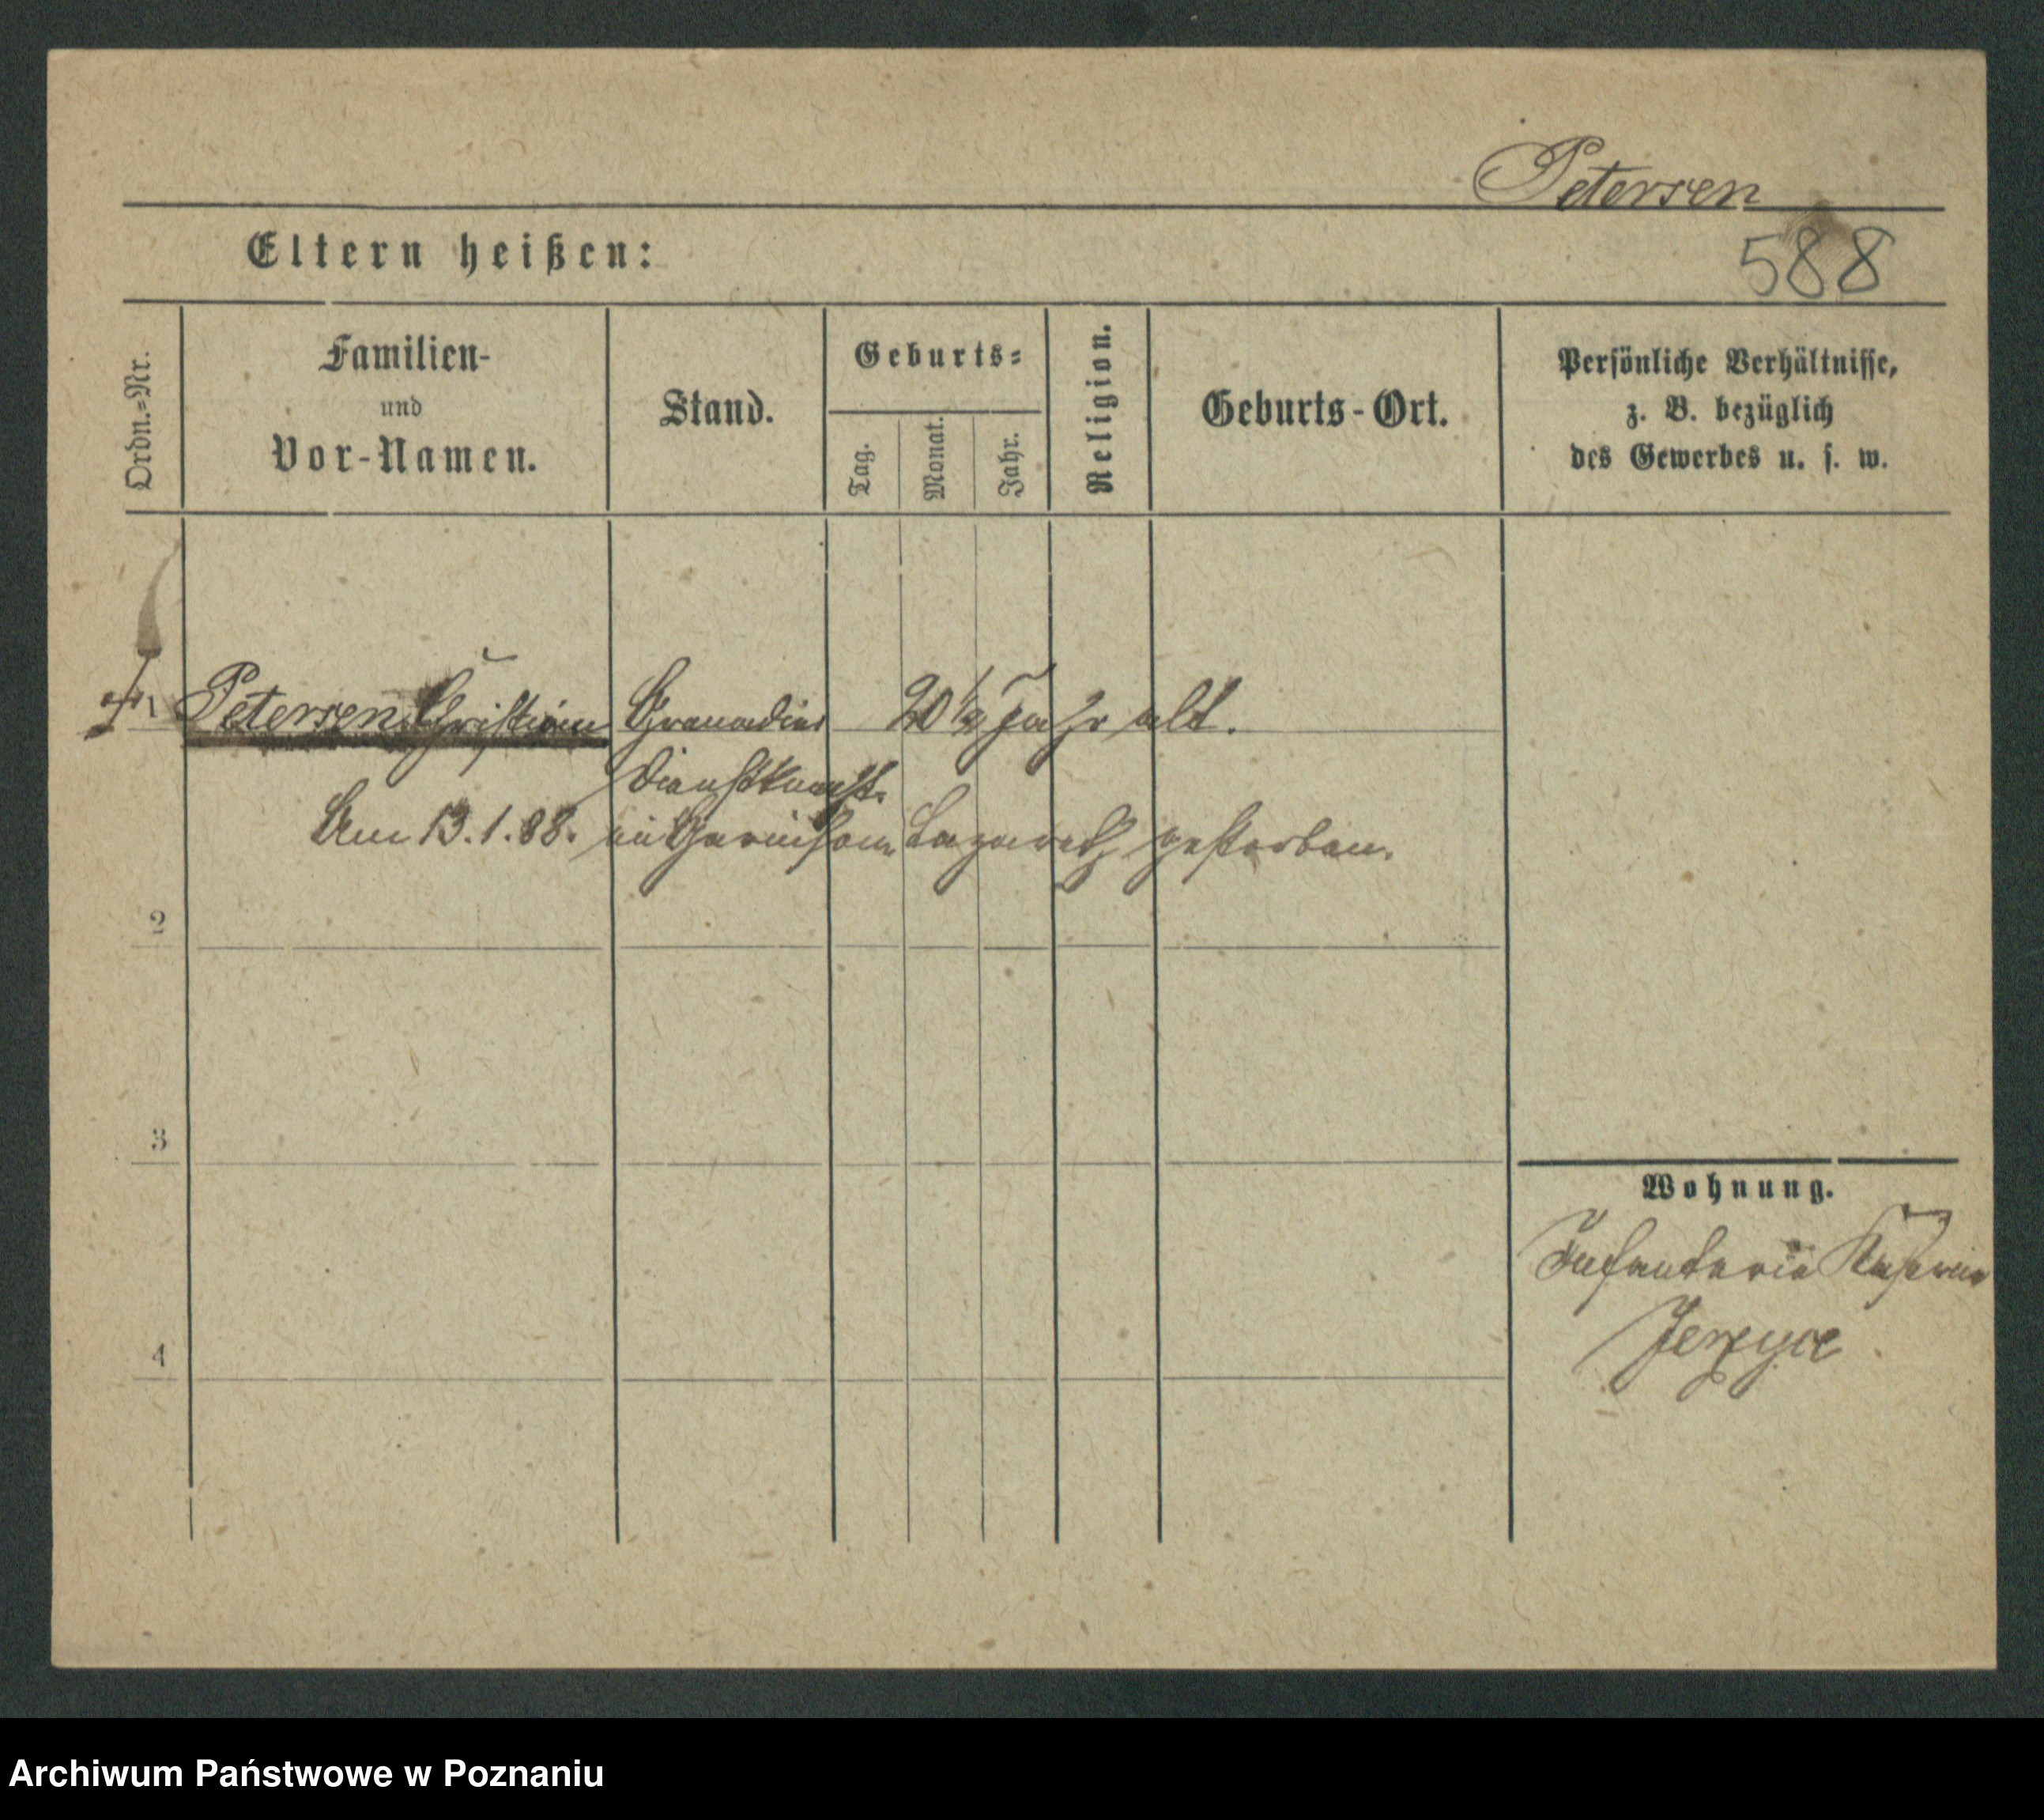 Petersen
Eltern heißen:
588
Ordn.=Nr.
Familien-
und
Vor-Namen.
Stand.
Geburts=
Tag.
Monat.
Jahr.
Religion.
Geburts-Ort.
Persönliche Verhältnisse,
z. B. bezüglich
des Gewerbes u. s. w.
1 Petersen Christian Grenadier 20 1/2 Jahr alt.
Am 13.1.88. im Garnison Lazareth gestorben.
2
3
4
Wohnung.
Infanterie Kaserne
Jerzyce
Archiwum Państwowe w Poznaniu